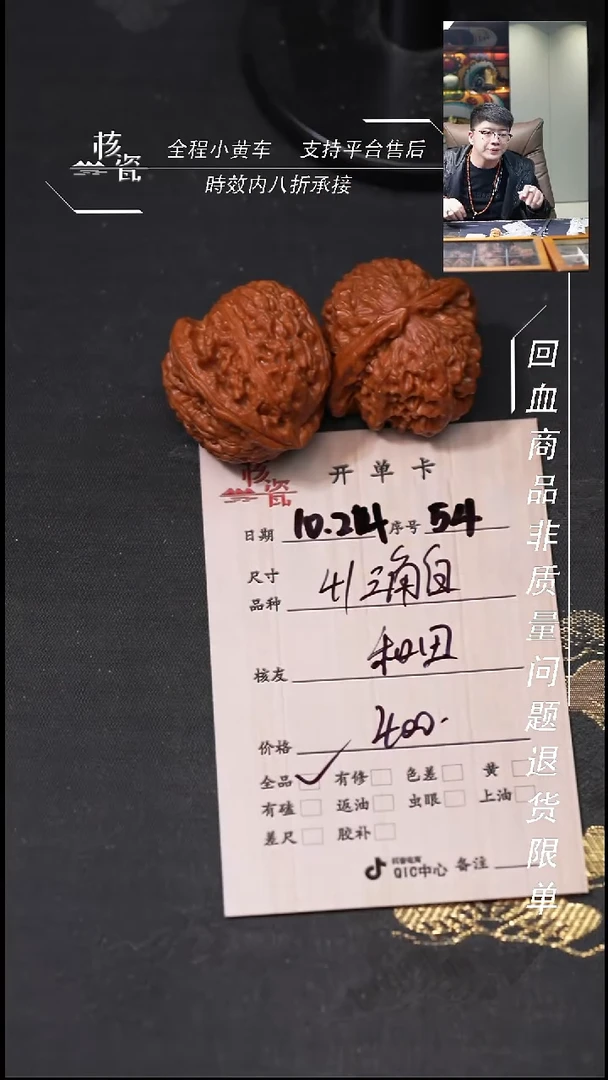 核瓷
全程小黄车 支持平台售后
時效内八折承接
回血商品非质量问题退货限单
核瓷
开单卡
日期 10.24 序号 54
尺寸
品种 41三角白
核友 和田
价格 400.
全品 ✓ 有修 色差 黄
有磕 返油 虫眼 上油
差尺 胶补
抖音电商
QIC中心 备注